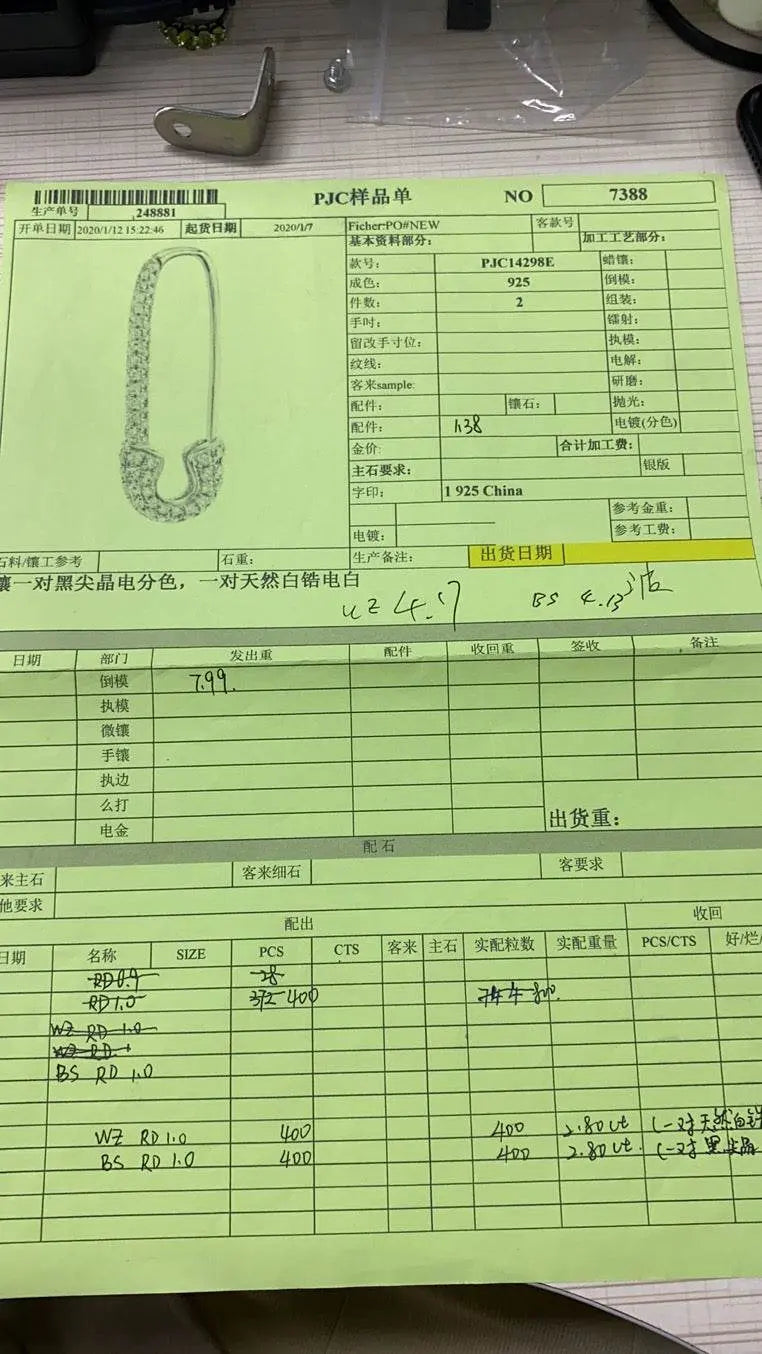 PJC样品单 NO 7388
生产单号 248881
开单日期 2020/1/12 15:22:46 起货日期 2020/1/7 Ficher:PO#NEW 客款号
基本资料部分: 加工工艺部分:
款号: PJC14298E 蜡镶:
成色: 925 倒模:
件数: 2 组装:
手寸: 镭射:
留改手寸位: 执模:
纹线: 电解:
客来sample: 研磨:
配件: 镶石: 抛光:
配件: 1.38 电镀(分色)
金价: 合计加工费:
主石要求: 银版
字印: 1 925 China
参考金重:
电镀: 参考工费:
石料/镶工参考 石重: 生产备注: 出货日期
镶一对黑尖晶电分色，一对天然白锆电白
BS 4.13
日期 部门 发出重 配件 收回重 签收 备注
倒模 7.99.
执模
微镶
手镶
执边
么打
电金 出货重:
配石
来主石 客来细石 客要求
他要求
配出 收回
日期 名称 SIZE PCS CTS 客来 主石 实配粒数 实配重量 PCS/CTS 好/烂/
RD 0.9 28
RD 1.0 372 400 744 800.
WZ RD 1.0
WZ RD 1
BS RD 1.0
WZ RD 1.0 400 400 2.80 ct (一对天然白锆
BS RD 1.0 400 400 2.80 ct. (一对黑尖晶